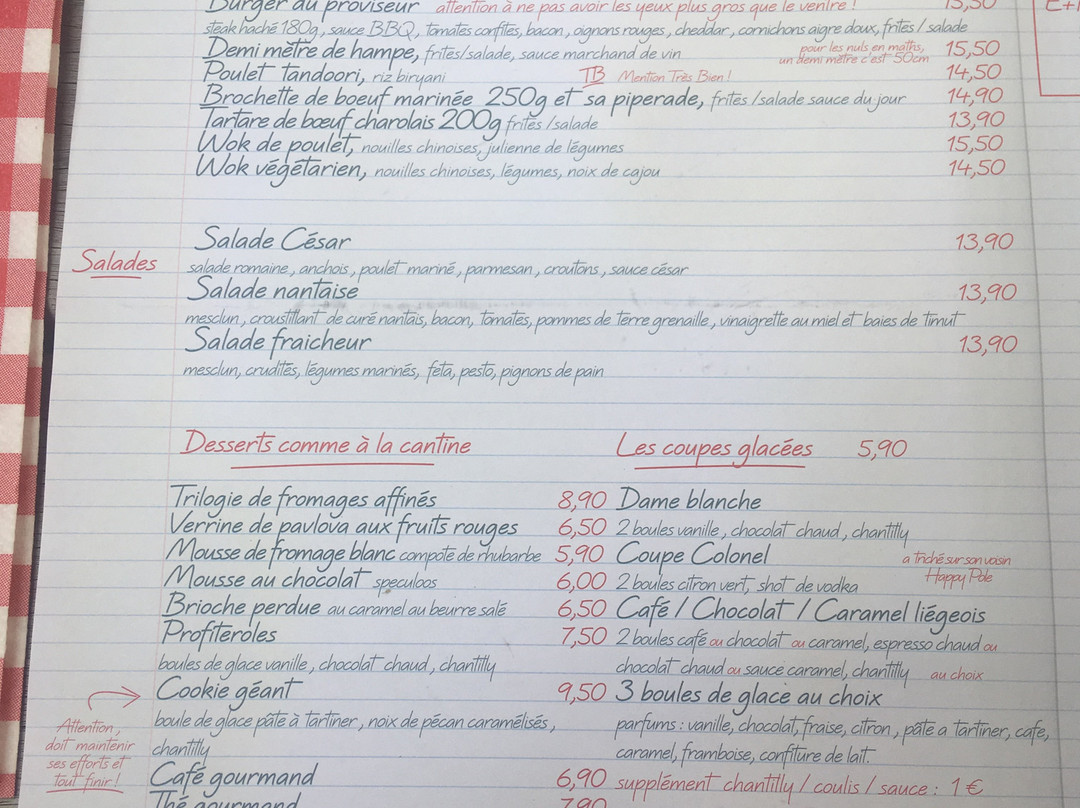 Burger du proviseur attention à ne pas avoir les yeux plus gros que le ventre ! 15,50
steak haché 180g, sauce BBQ, tomates confites, bacon, oignons rouges, cheddar, cornichons aigre doux, frites / salade
Demi mètre de hampe, frites/salade, sauce marchand de vin pour les nuls en maths, un demi mètre c'est 50cm 15,50
Poulet tandoori, riz biryani TB Mention Très Bien ! 14,50
Brochette de boeuf marinée 250g et sa piperade, frites /salade sauce du jour 14,90
Tartare de bœuf charolais 200g frites /salade 13,90
Wok de poulet, nouilles chinoises, julienne de légumes 15,50
Wok végétarien, nouilles chinoises, légumes, noix de cajou 14,50
Salades
Salade César 13,90
salade romaine, anchois, poulet mariné, parmesan, croutons, sauce césar
Salade nantaise 13,90
mesclun, croustillant de curé nantais, bacon, tomates, pommes de terre grenaille, vinaigrette au miel et baies de timut
Salade fraicheur 13,90
mesclun, crudités, légumes marinés, feta, pesto, pignons de pain
Desserts comme à la cantine
Trilogie de fromages affinés 8,90
Verrine de pavlova aux fruits rouges 6,50
Mousse de fromage blanc compote de rhubarbe 5,90
Mousse au chocolat speculoos 6,00
Brioche perdue au caramel au beurre salé 6,50
Profiteroles 7,50
boules de glace vanille, chocolat chaud, chantilly
Cookie géant 9,50
boule de glace pâte à tartiner, noix de pécan caramélisés,
chantilly
Attention,
doit maintenir
ses efforts et
tout finir !
Café gourmand 6,90
Thé gourmand 7,90
Les coupes glacées 5,90
Dame blanche
2 boules vanille, chocolat chaud, chantilly
Coupe Colonel
a triché sur son voisin
Happy Pole
2 boules citron vert, shot de vodka
Café / Chocolat / Caramel liégeois
2 boules café ou chocolat ou caramel, espresso chaud ou
chocolat chaud ou sauce caramel, chantilly au choix
3 boules de glace au choix
parfums : vanille, chocolat, fraise, citron, pâte a tartiner, cafe,
caramel, framboise, confiture de lait.
supplément chantilly / coulis / sauce : 1 €